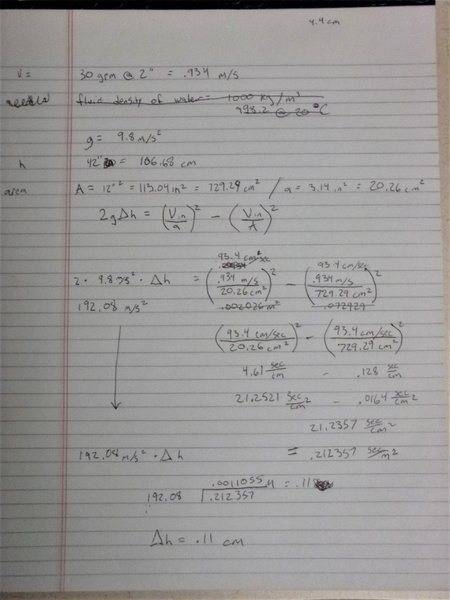 4.4 cm
V = 30 gpm @ 2" = .934 m/s
fluid density of water = 1000 kg/m³
998.2 @ 20°C
g = 9.8 m/s²
h 42" = 106.68 cm
area A = 12"² = 113.04 in² = 729.29 cm² / a = 3.14 in² = 20.26 cm²
2gΔh = (Vin/a)² - (Vin/A)²
93.4 cm/sec 93.4 cm/sec
2 · 9.8 m/s² · Δh = (.934 m/s / 20.26 cm²)² - (.934 m/s / 729.29 cm²)²
192.08 m/s² .002026 m² .072929
(93.4 cm/sec / 20.26 cm²)² - (93.4 cm/sec / 729.29 cm²)²
4.61 sec/cm - .128 sec/cm
21.2521 sec/cm² - .0164 sec/cm²
21.2357 sec/cm²
192.08 m/s² · Δh = .212357 sec/m²
.0011055 M = .11
192.08 .212357
Δh = .11 cm